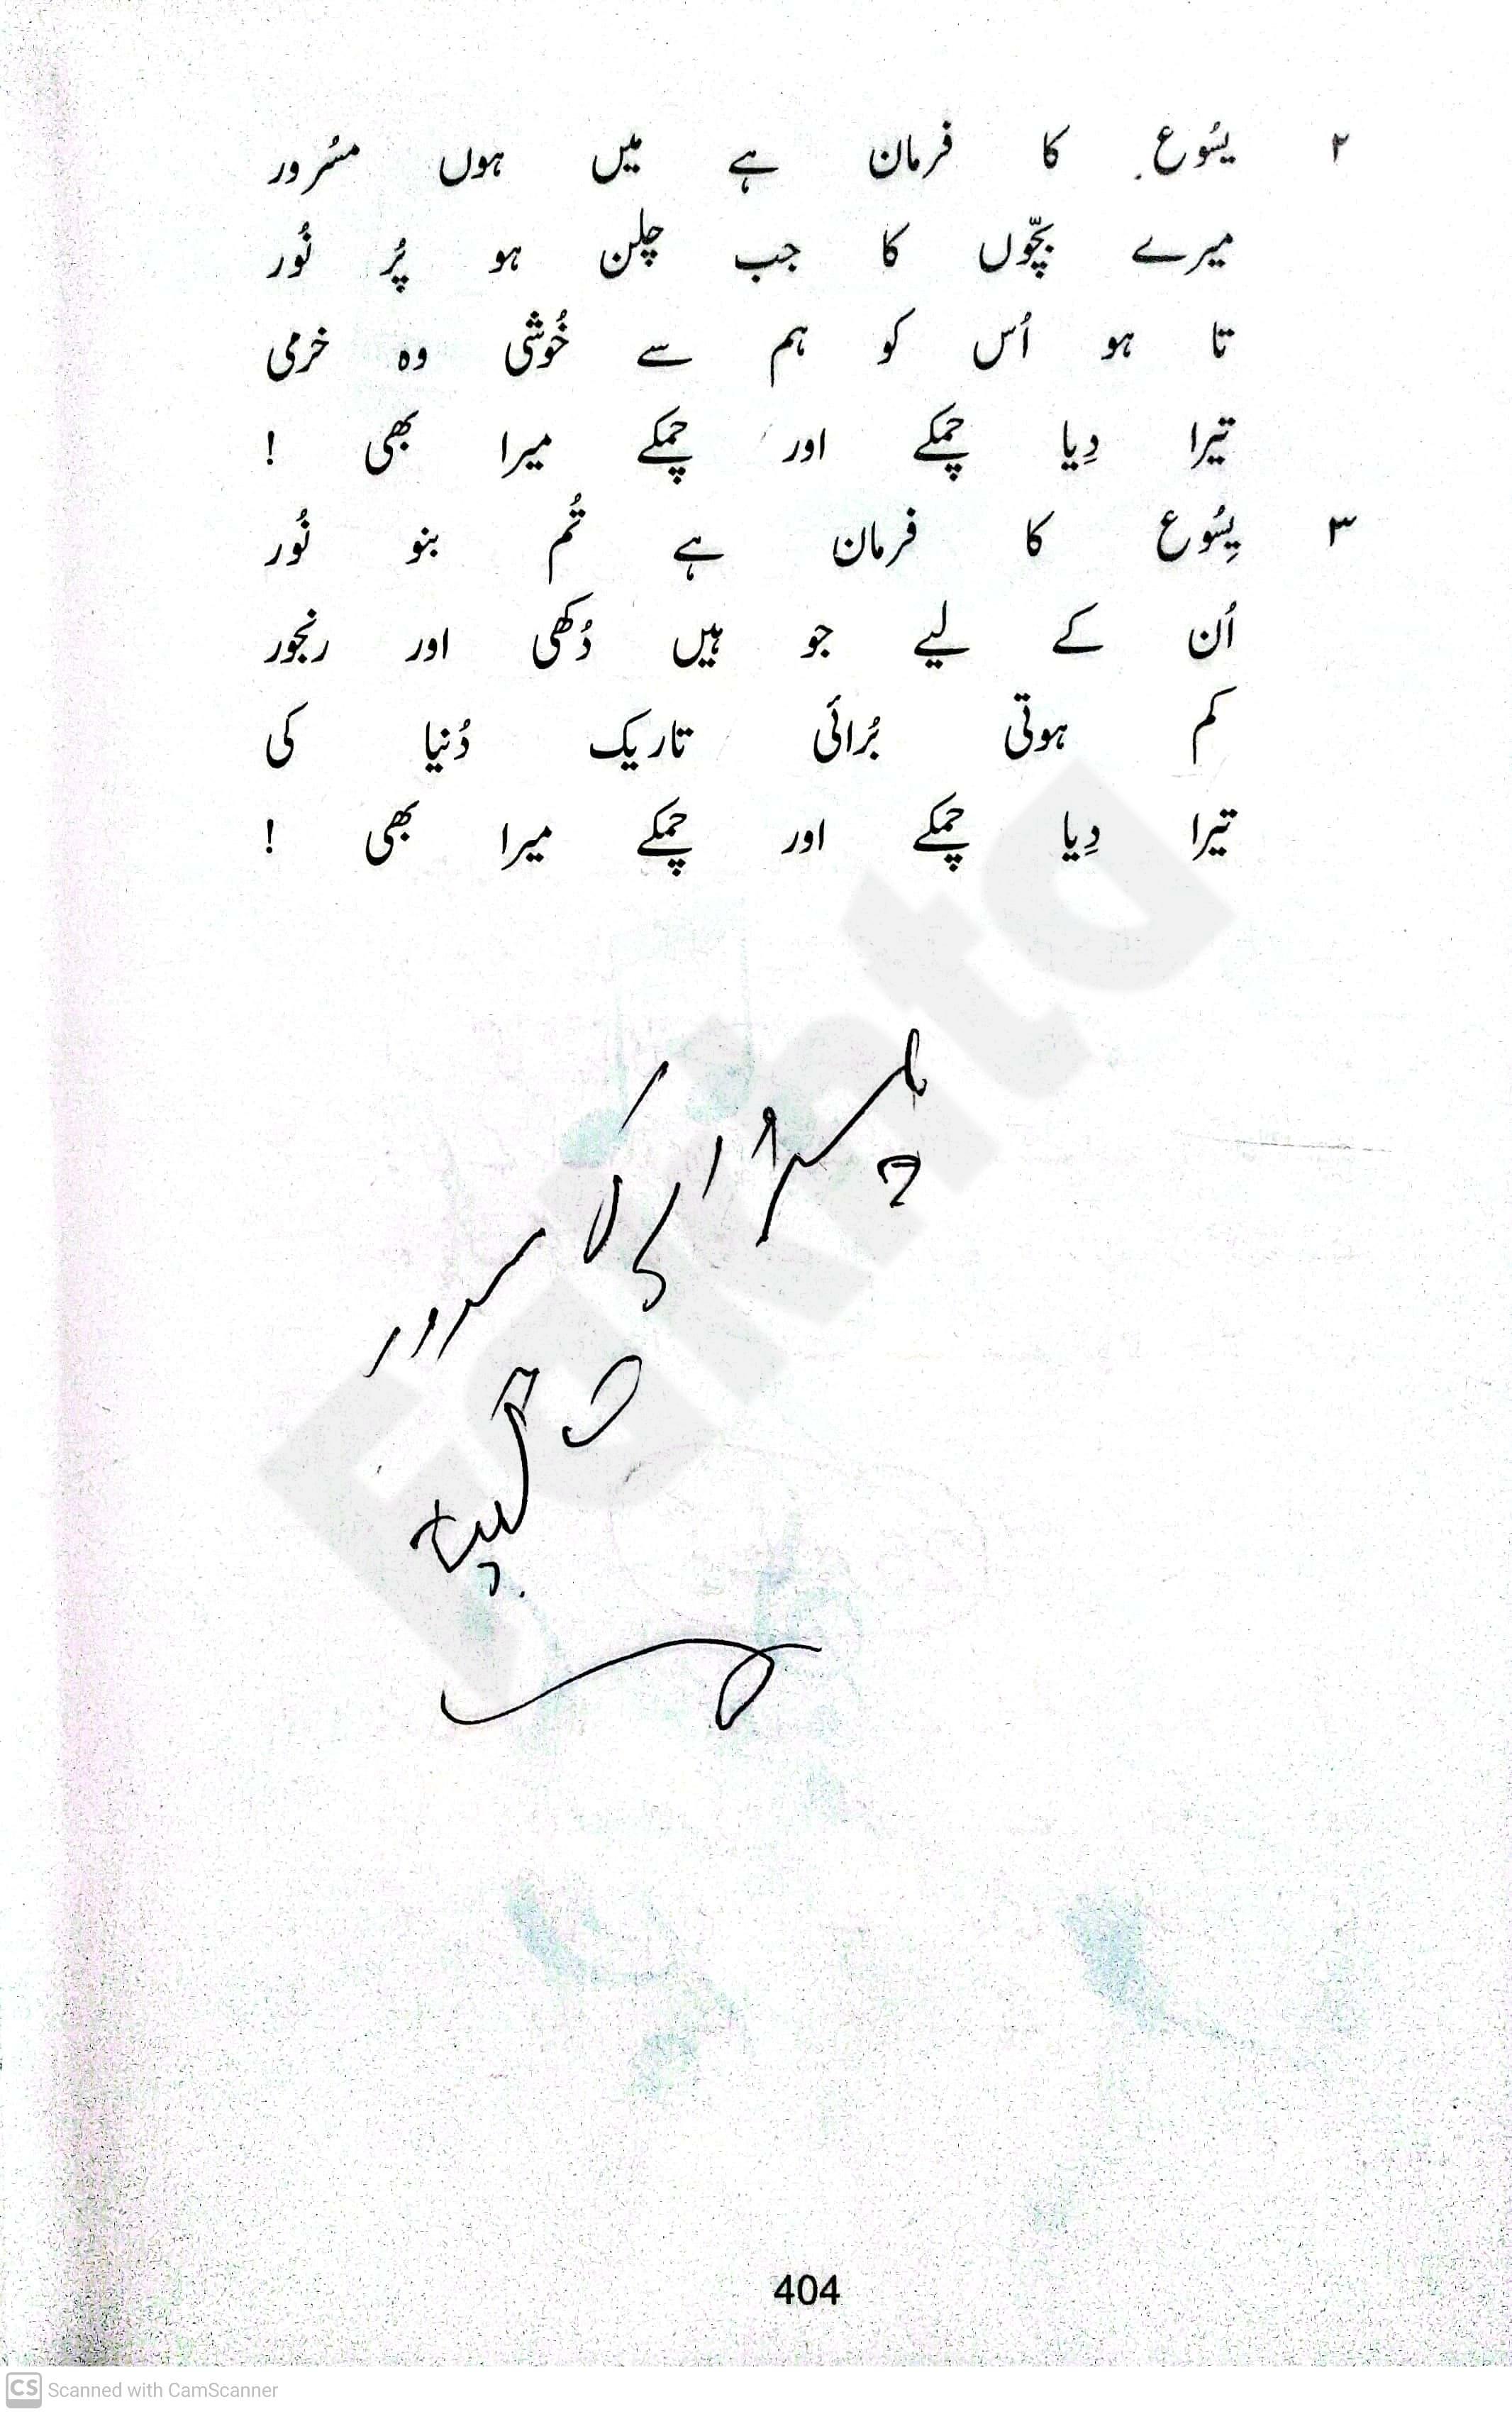 ۲ یسُوع کا فرمان ہے میں ہوں مسُرور
میرے بچّوں کا جب چلن ہو پُر نُور
تا ہو اُس کو ہم سے خُوشی وہ خرمی
تیرا دِیا چمکے اور چمکے میرا بھی !
۳ یِسُوع کا فرمان ہے تُم بنو نُور
اُن کے لیے جو ہیں دُکھی اور رنجور
کم ہوتی بُرائی تاریک دُنیا کی
تیرا دِیا چمکے اور چمکے میرا بھی !
Fakhta
404
CS Scanned with CamScanner